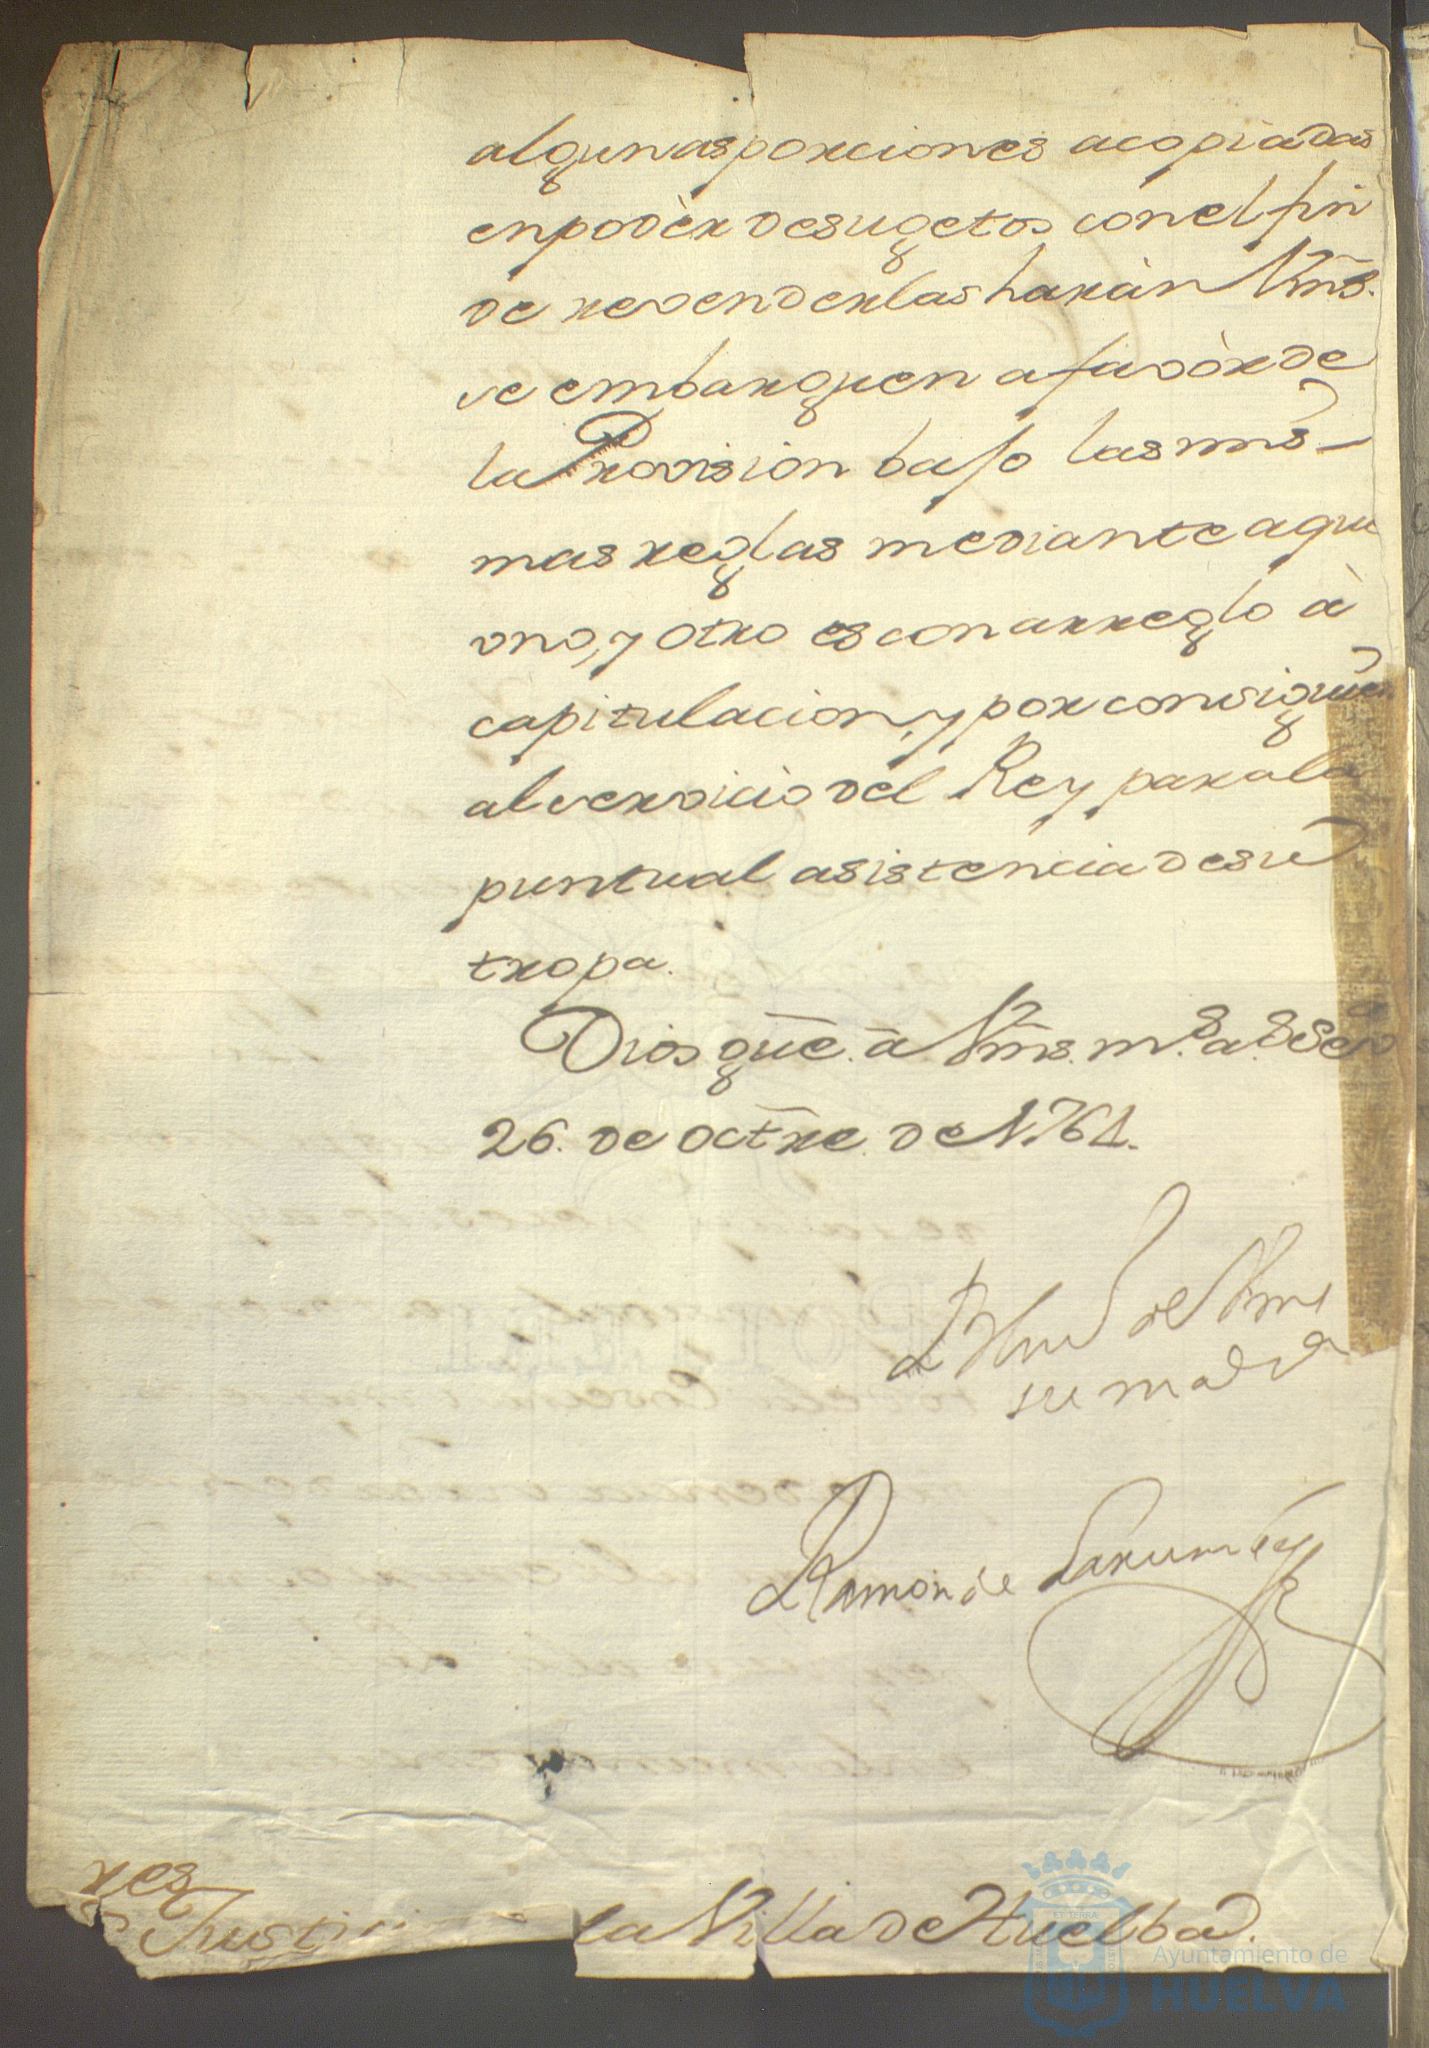 algunas porciones acopiadas
en podèr de sugetos con el fin
de revenderlas haràn Vms.
se embarguen a favòr de
la Provision bajo las mis-
mas reglas mediante a que
uno, y otro es con arreglo à
capitulacion, y por consiguien
al servicio del Rey para la
puntual asistencia de su
tropa.
Dios gue. a Vms. ms. as.
26. de octre. de 1761.
de Vms
su
Ramon de Larumbe
res
Justi
la Villa de Huelba.
ET TERRA
Ayuntamiento de
HUELVA